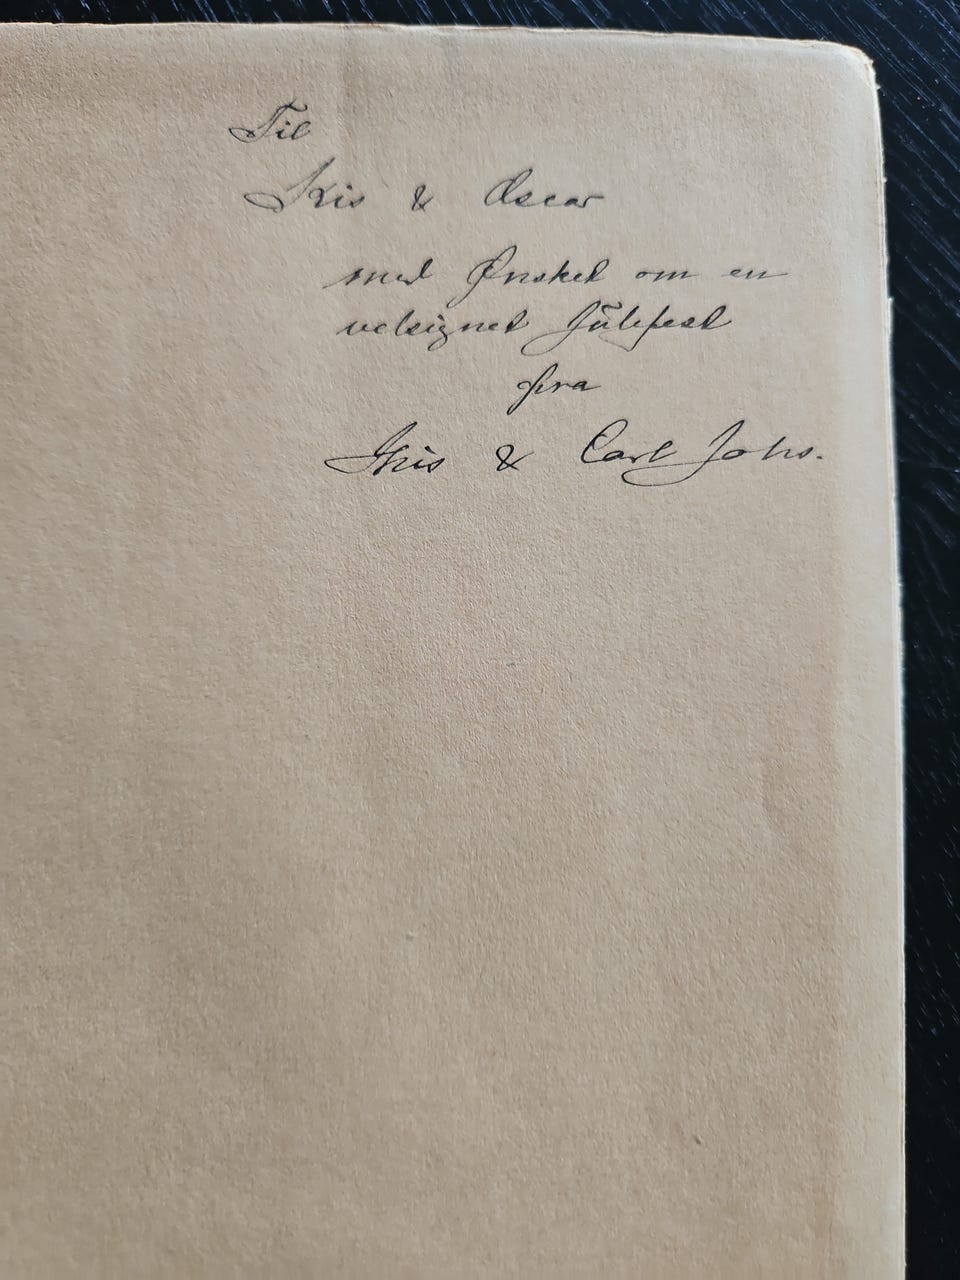 Til
Kis & Oscar
med Ønsket om en
velsignet Julefest
fra
& Carl Johs.